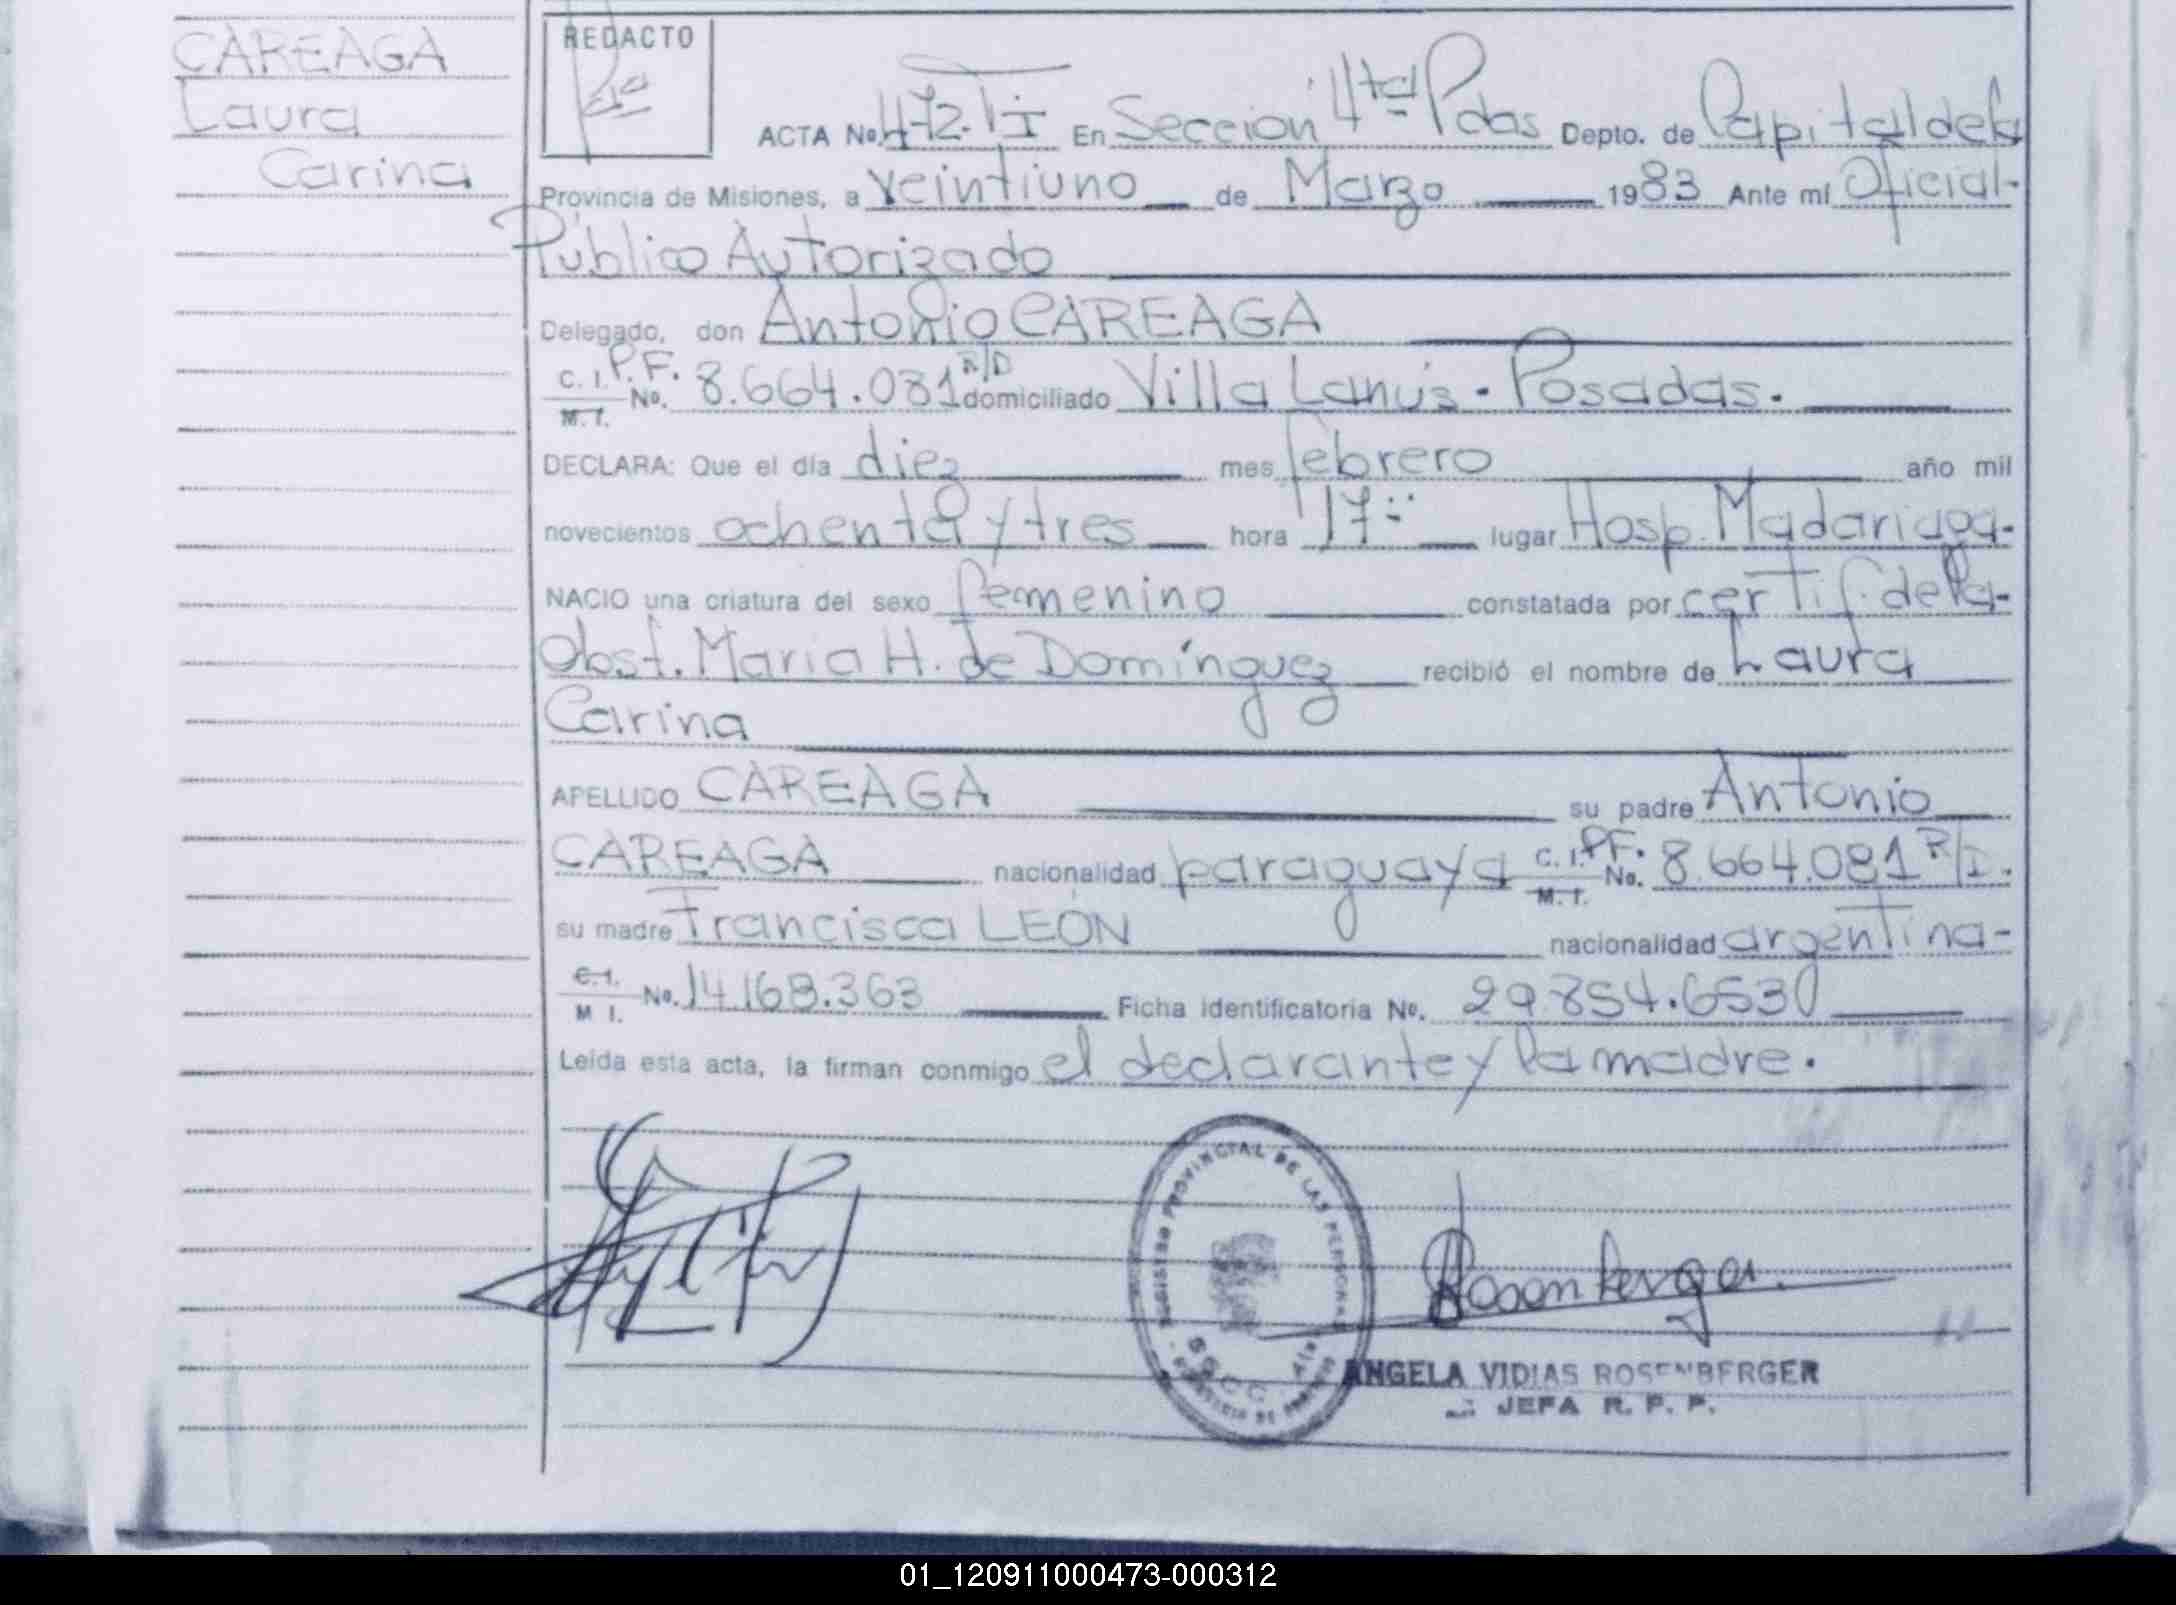 CAREAGA
Laura
Carina
REDACTO
ACTA No. 472. TI En Sección 4ta Pdas Depto. de Capital de la
Provincia de Misiones, a veintiuno de Marzo 1983 Ante mí Oficial-
Público Autorizado
Delegado, don Antonio CAREAGA
C. I. P.F. No. 8.664.081 R/D domiciliado Villa Lanús - Posadas.
M. I.
DECLARA: Que el día diez mes febrero año mil
novecientos ochenta y tres hora 17 lugar Hosp. Madariaga-
NACIO una criatura del sexo femenino constatada por certif. de la-
Obst. Maria H. de Domínguez recibió el nombre de Laura
Carina
APELLIDO CAREAGA su padre Antonio
CAREAGA nacionalidad paraguaya C. I. PF. No. 8.664.081 R/D.
M. I.
su madre Francisca LEÓN nacionalidad argentina-
C. I. No. 14.168.363 Ficha identificatoria No. 29.854.6530
M I.
Leída esta acta, la firman conmigo el declarante y la madre.
REGISTRO PROVINCIAL DE LAS PERSONAS
Rosenberger
ANGELA VIDIAS ROSENBERGER
JEFA R. P. P.
01_120911000473-000312